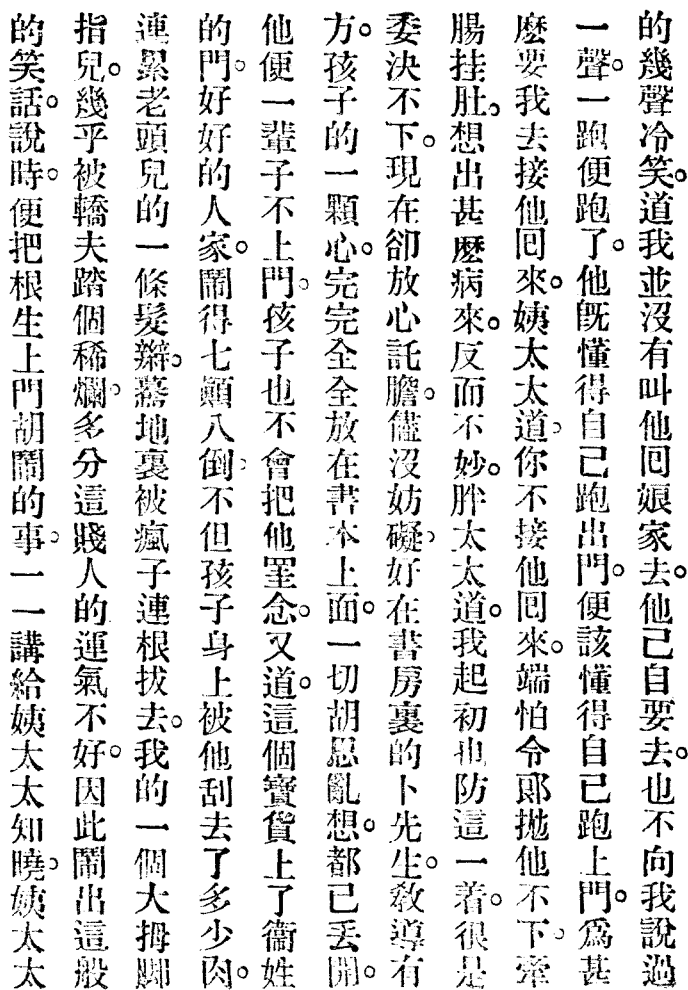 的幾聲冷笑。道我並沒有叫他囘娘家去。他己自要去。也不向我說過
一聲。一跑便跑了。他旣懂得自己跑出門。便該懂得自己跑上門。爲甚
麽要我去接他囘來。姨太太道。你不接他囘來。端怕令郞拋他不下。牽
腸挂肚。想出甚麽病來。反而不妙。胖太太道。我起初也防這一着。很是
委決不下。現在卻放心託膽。儘沒妨礙。好在書房裏的卜先生。敎導有
方。孩子的一顆心。完完全全放在書本上面。一切胡思亂想。都已丢開。
他便一輩子不上門。孩子也不會把他罣念。又道。這個寶貨上了衞姓
的門。好好的人家。鬧得七顚八倒。不但孩子身上被他刮去了多少肉。
連累老頭兒的一條髮辮。驀地裏被瘋子連根拔去。我的一個大拇脚
指兒。幾乎被轎夫踏個稀爛。多分這賤人的運氣不好。因此鬧出這般
的笑話。說時。便把根生上門胡鬧的事。一一講給姨太太知曉。姨太太